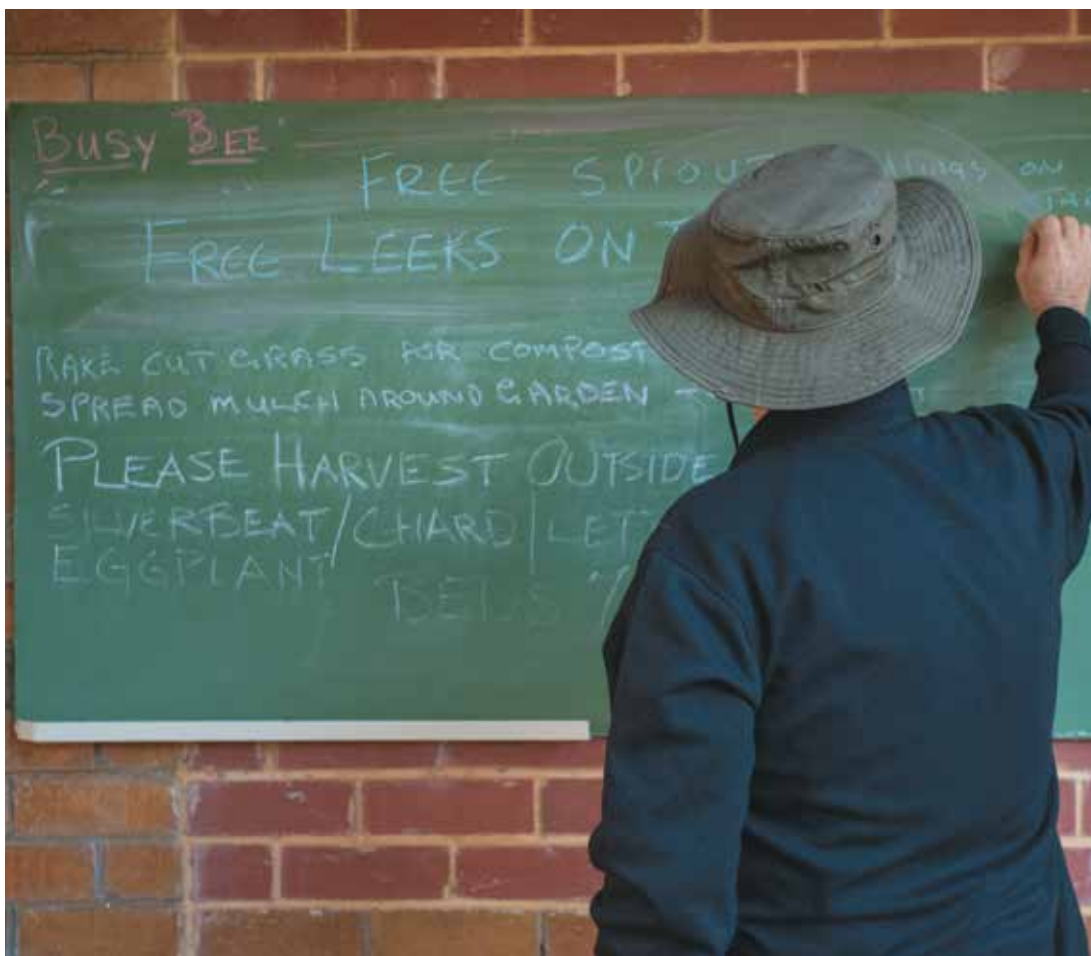 BUSY BEE
FREE SPROUT on
FREE LEEKS ON
RAKE CUT GRASS FOR COMPOST
SPREAD MULCH AROUND GARDEN
PLEASE HARVEST OUTSIDE
SILVERBEAT/CHARD/LET
EGGPLANT
BEDS